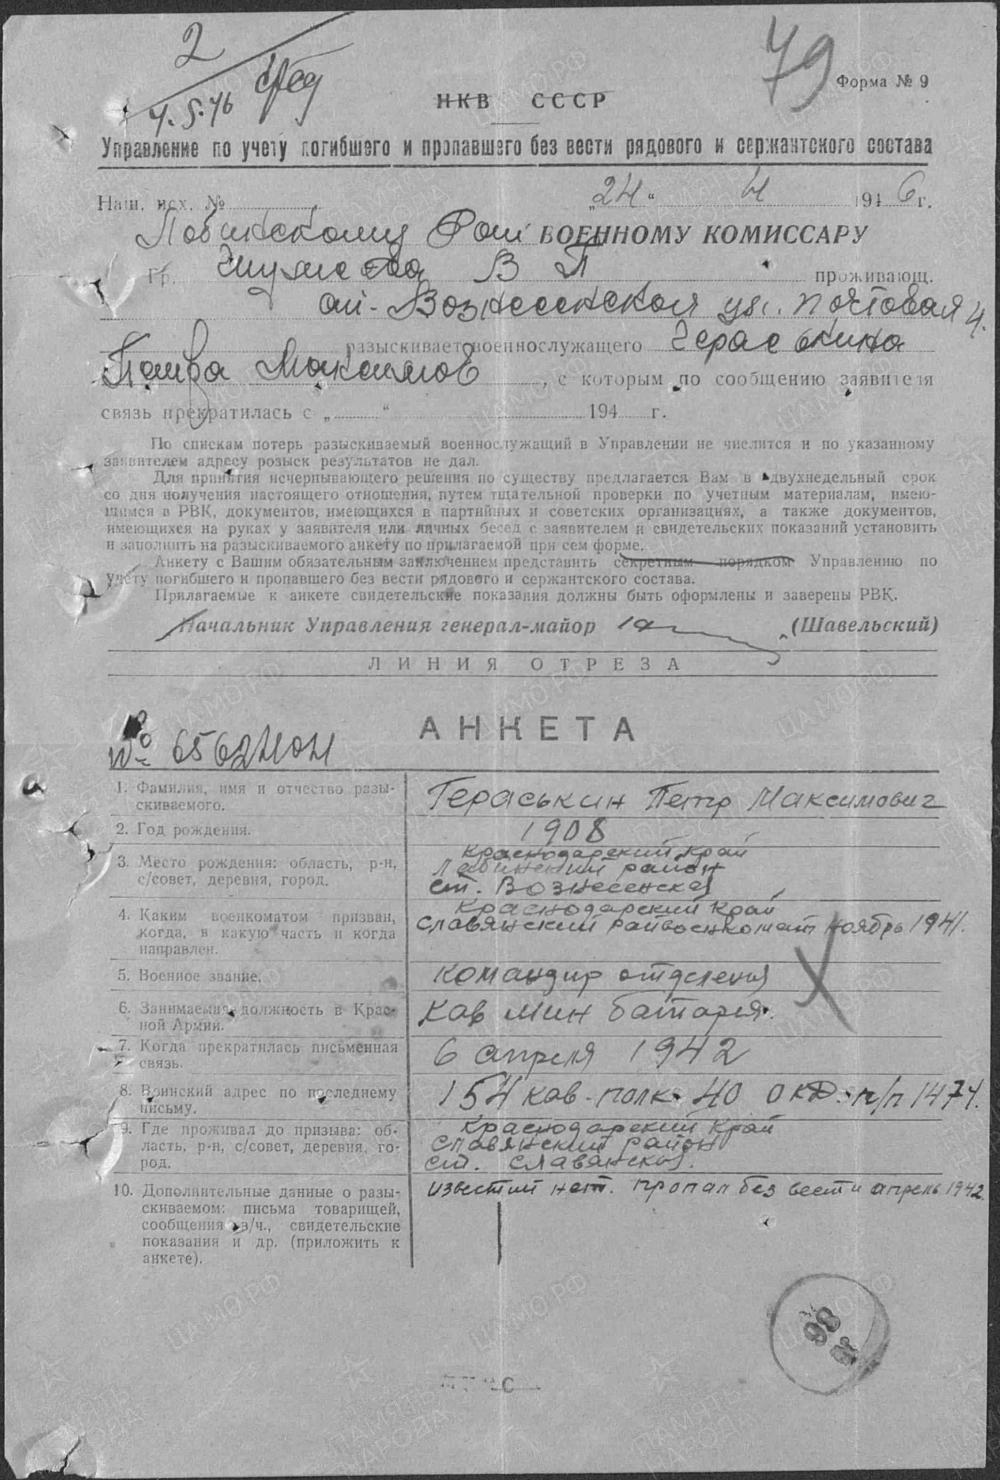 2
79
4.5.46
Форма № 9
НКВ СССР
Управление по учету погибшего и пропавшего без вести рядового и сержантского состава
Наш. исх. № „24“ 4 1946 г.
Лабинскому Рай ВОЕННОМУ КОМИССАРУ
Гр. В П проживающ.
ст. Вознесенской ул. Почтовая 4.
разыскивает военнослужащего Гераськина
Петра Максимов , с которым по сообщению заявителя
связь прекратилась с „ “ 194 г.
По спискам потерь разыскиваемый военнослужащий в Управлении не числится и по указанному
заявителем адресу розыск результатов не дал.
Для принятия исчерпывающего решения по существу предлагается Вам в двухнедельный срок
со дня получения настоящего отношения, путем тщательной проверки по учетным материалам, имею-
щимся в РВК, документов, имеющихся в партийных и советских организациях, а также документов,
имеющихся на руках у заявителя или личных бесед с заявителем и свидетельских показаний установить
и заполнить на разыскиваемого анкету по прилагаемой при сем форме.
Анкету с Вашим обязательным заключением представить секретным порядком Управлению по
учету погибшего и пропавшего без вести рядового и сержантского состава.
Прилагаемые к анкете свидетельские показания должны быть оформлены и заверены РВК.
Начальник Управления генерал-майор (Шавельский)
ЛИНИЯ ОТРЕЗА
АНКЕТА
№ 6562
1. Фамилия, имя и отчество разы-
скиваемого.
Гераськин Петр Максимович
2. Год рождения.
1908
3. Место рождения: область, р-н,
с/совет, деревня, город.
Краснодарский край
Лабинский район
ст. Вознесенская
4. Каким военкоматом призван,
когда, в какую часть и когда
направлен.
Краснодарский Край
Славянский райвоенкомат ноябрь 1941.
5. Военное звание.
командир отделения
6. Занимаемая должность в Крас-
ной Армии.
Кав мин батарея.
7. Когда прекратилась письменная
связь.
6 апреля 1942
8. Воинский адрес по последнему
письму.
154 кав-полк 40 ОКД. п/п 1474.
9. Где проживал до призыва: об-
ласть, р-н, с/совет, деревня, го-
род.
Краснодарский Край
Славянский район
ст. Славянская.
10. Дополнительные данные о разы-
скиваемом: письма товарищей,
сообщения в/ч., свидетельские
показания и др. (приложить к
анкете).
известий нет. пропал без вести апрель 1942
98